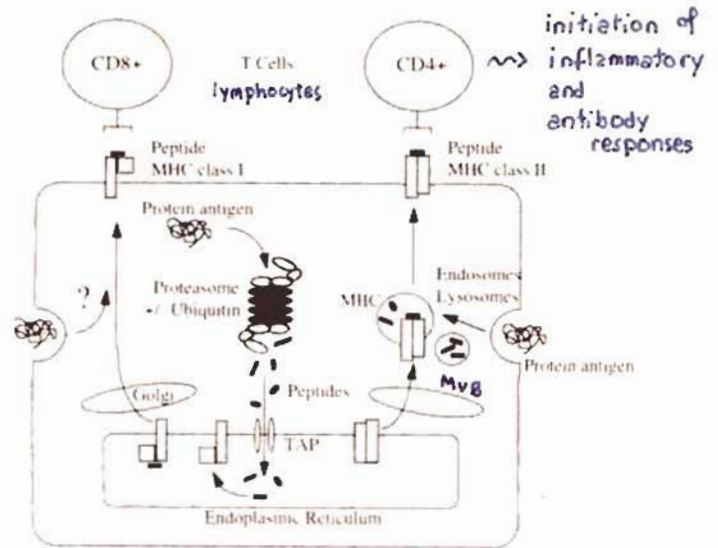 CD8+
T Cells
lymphocytes
CD4+
initiation of
inflammatory
and
antibody
responses
Peptide
MHC class I
Peptide
MHC class II
Protein antigen
?
Proteasome
+/- Ubiquitin
MHC
Endosomes
Lysosomes
Protein antigen
MVB
Golgi
Peptides
TAP
Endoplasmic Reticulum